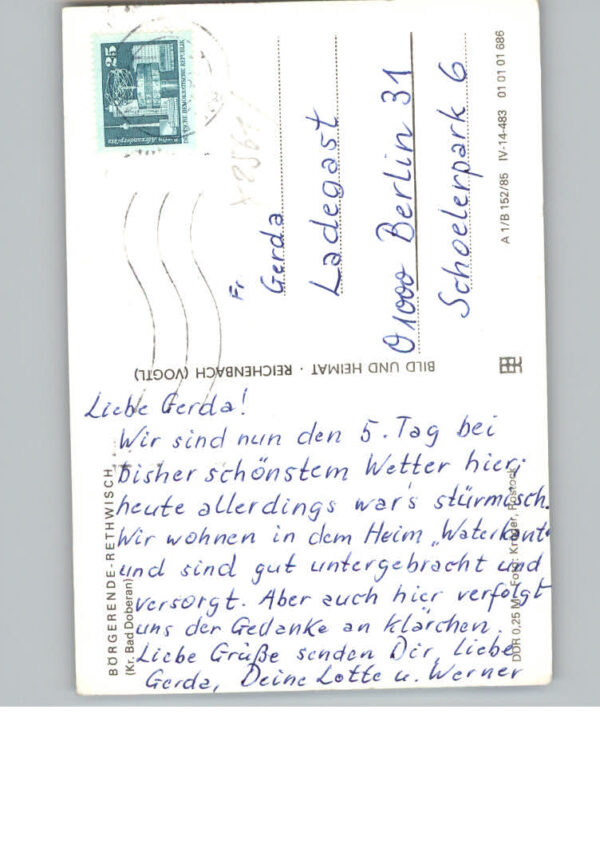 Liebe Gerda!
Wir sind nun den 5. Tag bei
bisher schönstem Wetter hier;
heute allerdings war's stürmisch.
Wir wohnen in dem Heim „Waterkant“
und sind gut untergebracht und
versorgt. Aber auch hier verfolgt
uns der Gedanke an Klärchen.
Liebe Grüße senden Dir, liebe
Gerda, Deine Lotte u. Werner
Fr.
Gerda
Ladegast
01000 Berlin 31
Schoelerpark 6
25
BILD UND HEIMAT · REICHENBACH (VOGTL)
BÖRGERENDE-RETHWISCH
(Kr. Bad Doberan)
DDR 0,25 M Foto: Rostock
A 1/B 152/85 IV-14-483 01 01 01 686